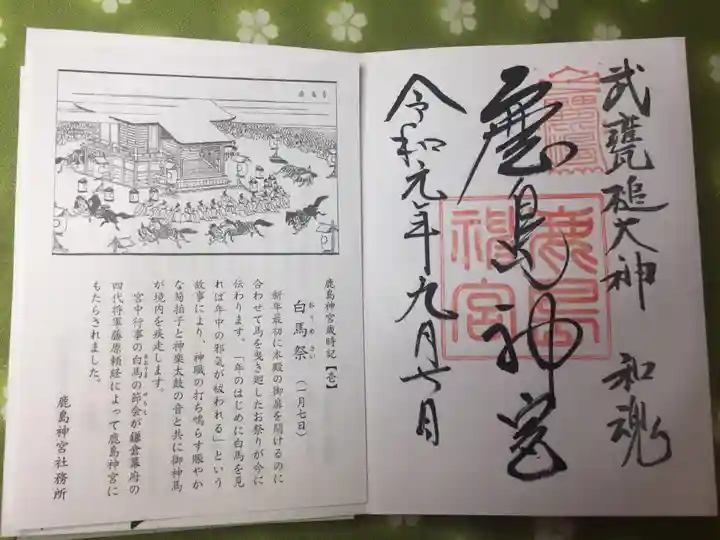 武甕槌大神　和魂
鹿島神宮
令和元年九月七日
鹿島
神宮
鹿島神宮歳時記【壱】
白馬祭（一月七日）
おうめさい
新年最初に本殿の御扉を開けるのに
合わせて馬を曳き廻したお祭りが今に
伝わります。「年のはじめに白馬を見
れば年中の邪気が祓われる」という
故事により、神職の打ち鳴らす賑やか
な笏拍子と神楽太鼓の音と共に御神馬
が境内を疾走します。
宮中行事の白馬の節会が鎌倉幕府の
四代将軍藤原頼経によって鹿島神宮に
もたらされました。
鹿島神宮社務所